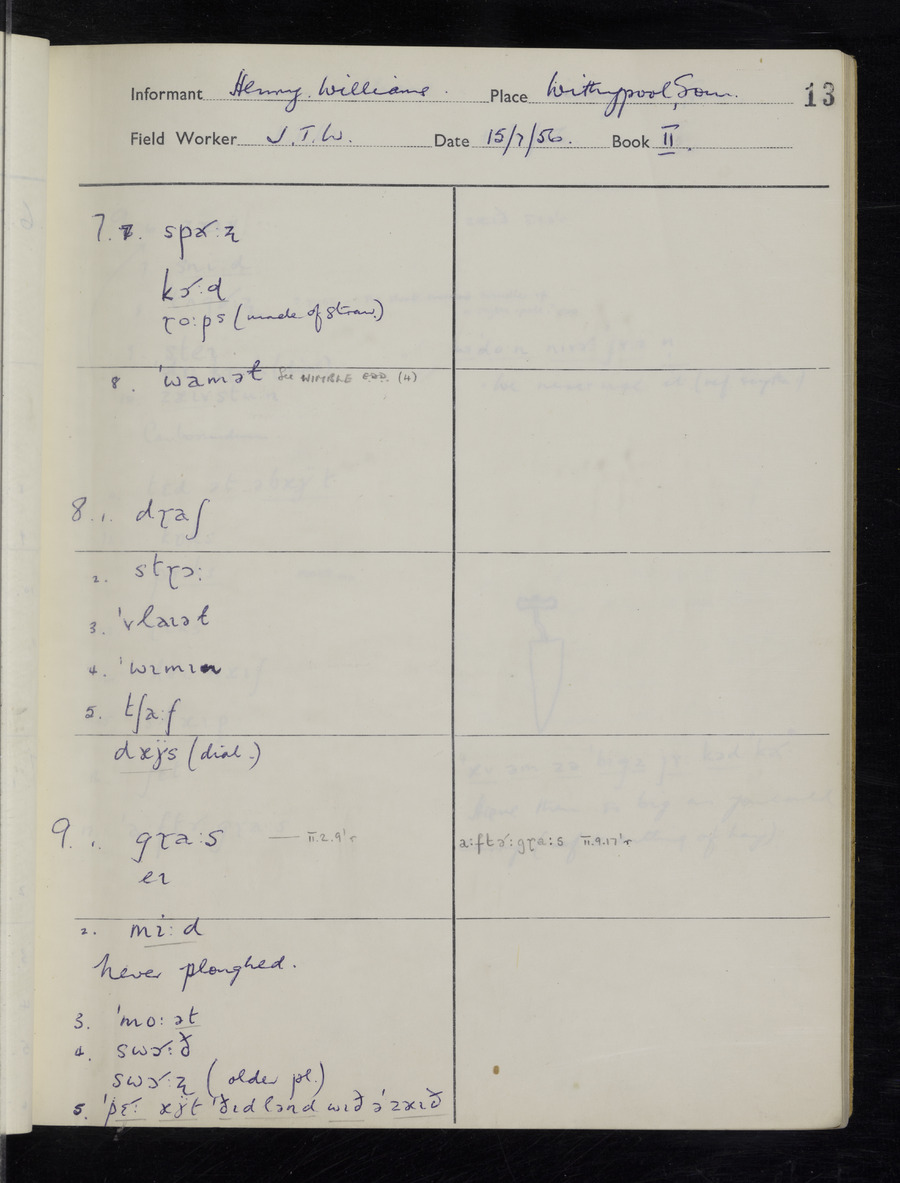 Informant Henry Williams. Place Withypool, Som. 13
Field Worker J.T.W. Date 15/7/56. Book II.
7. 7. spɚ:ʐ
kɔ˞:d
ɽo:ps (made of straw)
8. ˈwamət See WIMBLE EDD. (4)
8. 1. dɽaʃ
2. stɽɔ:
3. ˈvlaɪət
4. ˈwɪmɪn
5. tʃa:f
(dial.)
9. 1. gɽa:s — II.2.9'r a:ftɚ:gɽa:s II.9.17'r
eɪ
2. mi:d
never ploughed.
3. ˈmo:ət
4. swɚ:ð
swɚ:ʐ (older pl.)
5.